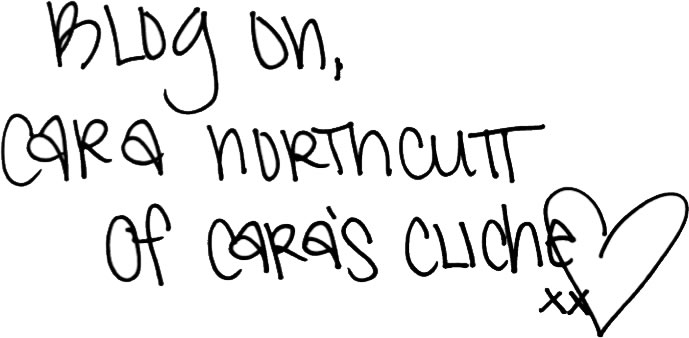 Blog on,
Cara Northcutt
of Cara's Cliche
xx